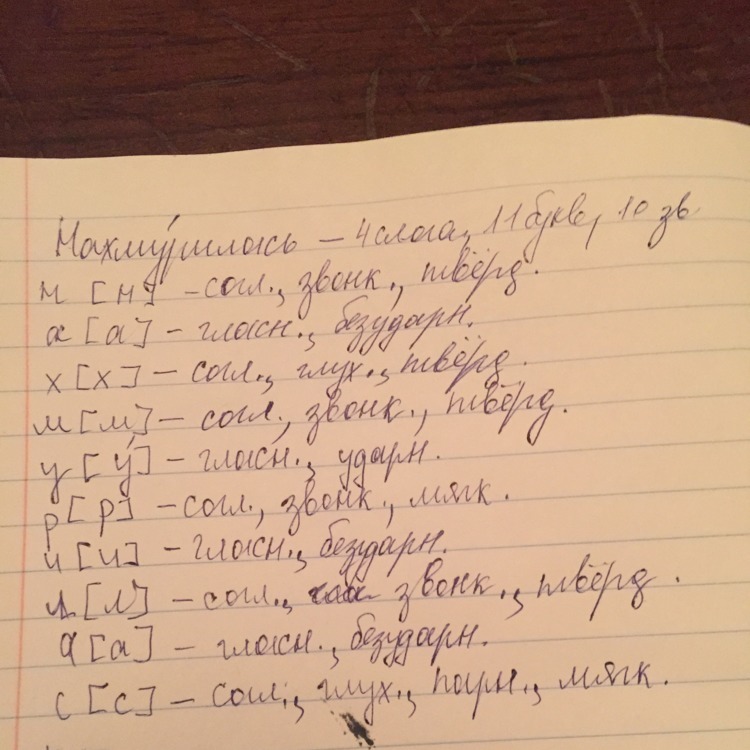 Нахму́рилась – 4 слога, 11 букв, 10 зв
н [н] – согл., звонк., твёрд.
а [а] – гласн., безударн.
х [х] – согл., глух., твёрд.
м [м] – согл., звонк., твёрд.
у [у́] – гласн., ударн.
р [р] – согл., звонк., мягк.
и [и] – гласн., безударн.
л [л] – согл., звонк., твёрд.
а [а] – гласн., безударн.
с [с] – согл., глух., парн., мягк.